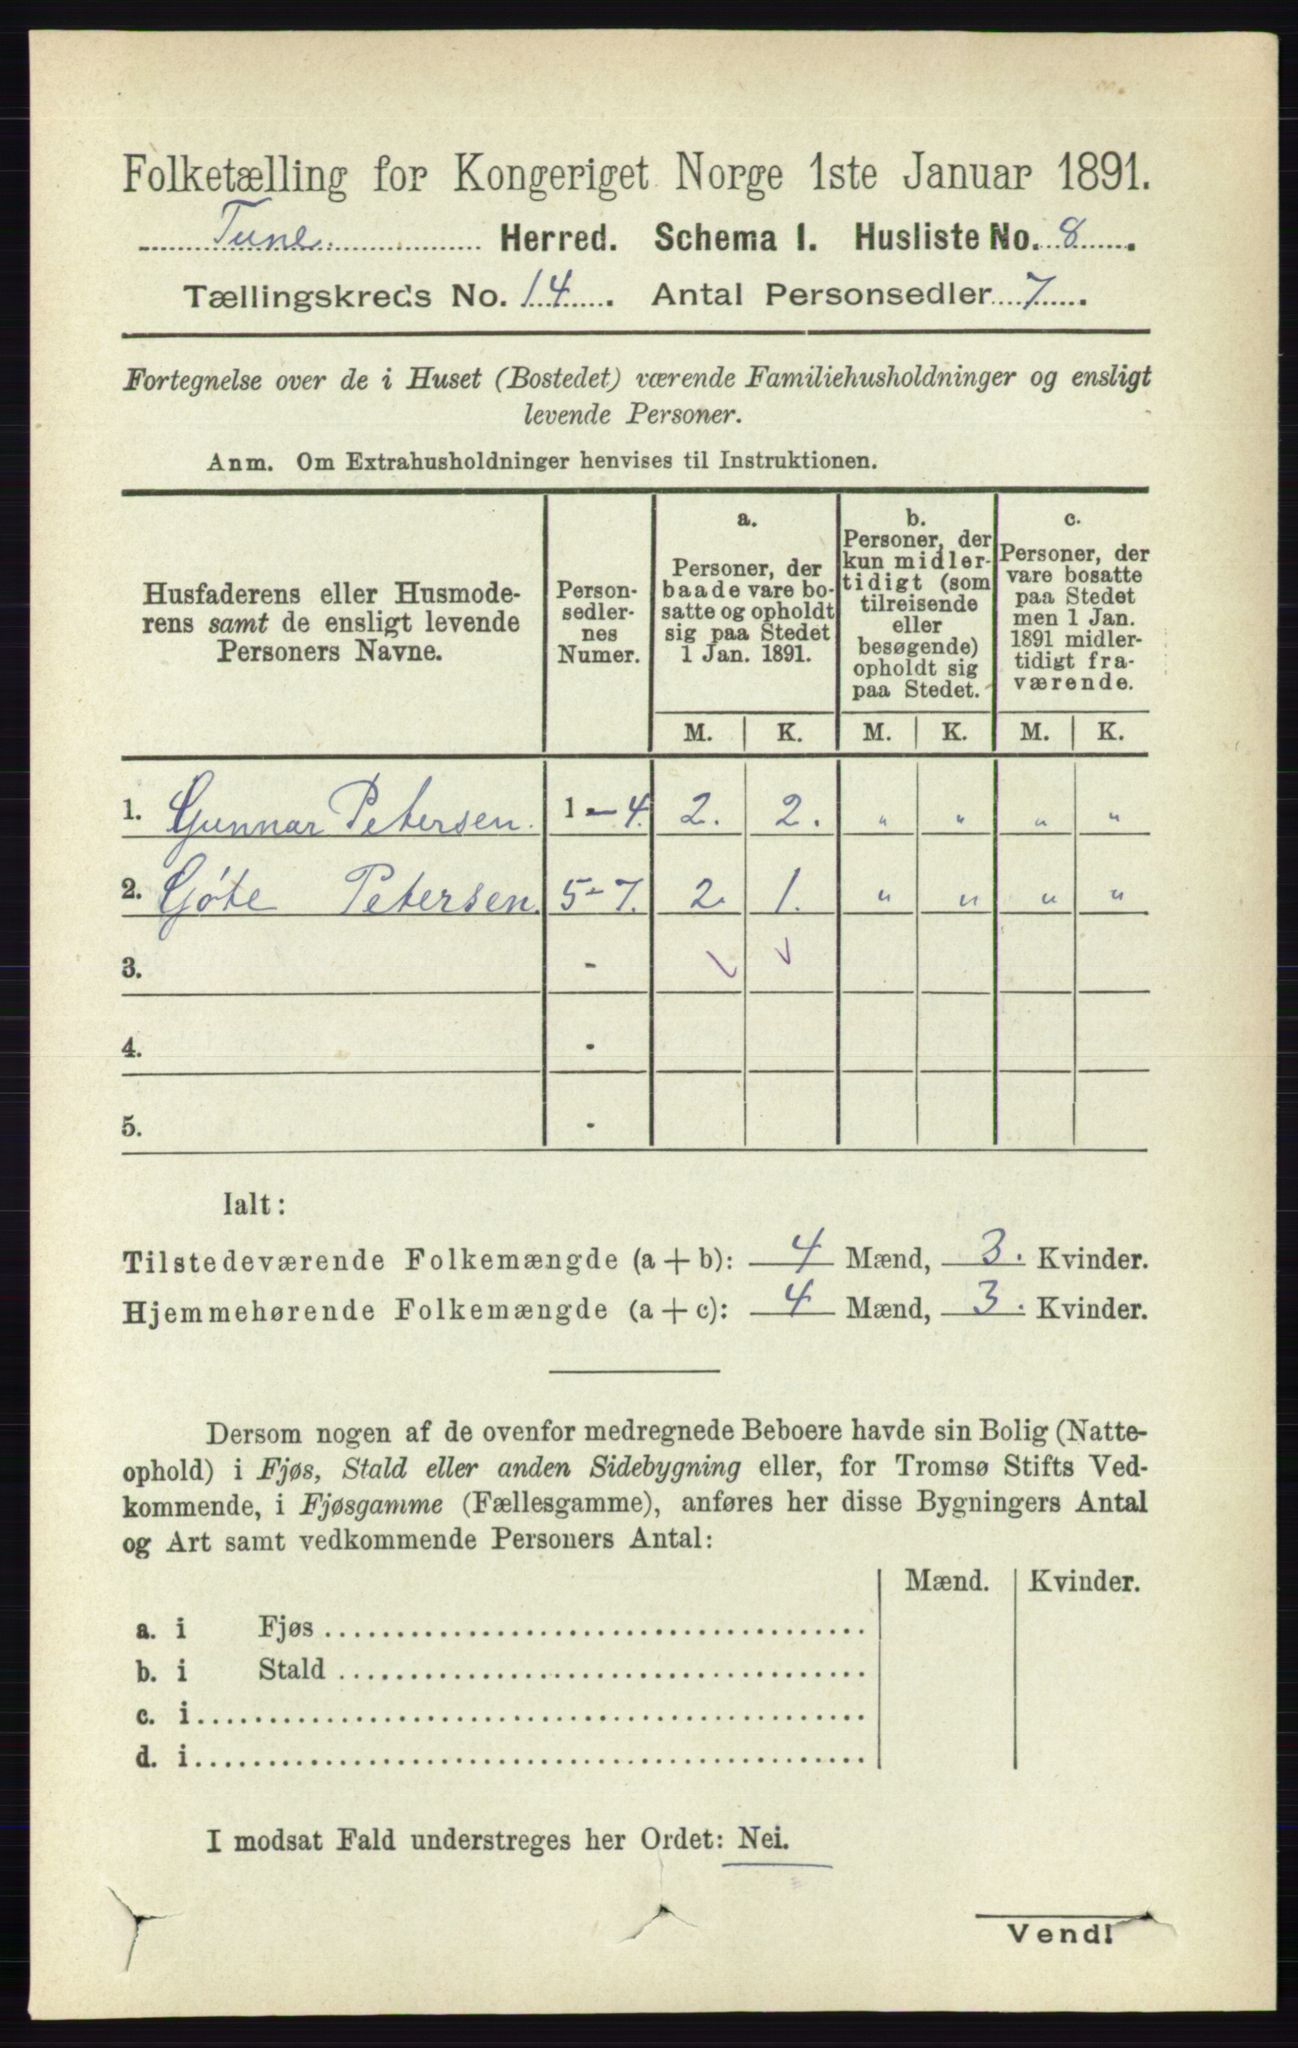 Folketælling for Kongeriget Norge 1ste Januar 1891.
Tune Herred. Schema I. Husliste No. 8.
Tællingskreds No. 14. Antal Personsedler 7.
Fortegnelse over de i Huset (Bostedet) værende Familiehusholdninger og ensligt
levende Personer.
Anm. Om Extrahusholdninger henvises til Instruktionen.
Husfaderens eller Husmode-
rens samt de ensligt levende
Personers Navne.
Person-
sedler-
nes
Numer.
a.
Personer, der
baade vare bo-
satte og opholdt
sig paa Stedet
1 Jan. 1891.
b.
Personer, der
kun midler-
tidigt (som
tilreisende
eller
besøgende)
opholdt sig
paa Stedet.
c.
Personer, der
vare bosatte
paa Stedet
men 1 Jan.
1891 midler-
tidigt fra-
værende.
M. K. M. K. M. K.
1. Gunnar Petersen. 1-4. 2. 2. " " " "
2. Göte Petersen. 5-7. 2. 1. " " " "
3. -
4. -
5. -
Ialt:
Tilstedeværende Folkemængde (a + b): 4 Mænd, 3. Kvinder.
Hjemmehørende Folkemængde (a + c): 4 Mænd, 3. Kvinder.
Dersom nogen af de ovenfor medregnede Beboere havde sin Bolig (Natte-
ophold) i Fjøs, Stald eller anden Sidebygning eller, for Tromsø Stifts Ved-
kommende, i Fjøsgamme (Fællesgamme), anføres her disse Bygningers Antal
og Art samt vedkommende Personers Antal:
Mænd. Kvinder.
a. i Fjøs
b. i Stald
c. i
d. i
I modsat Fald understreges her Ordet: Nei.
Vend!